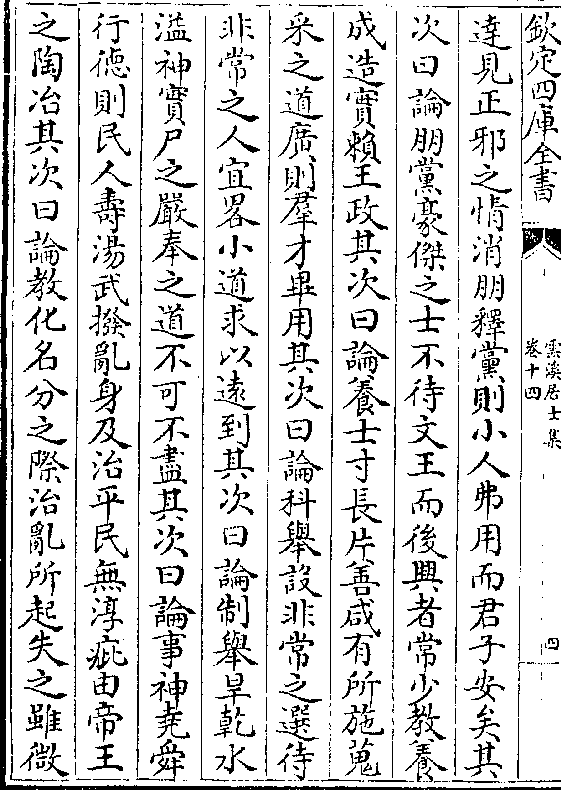 欽定四庫全書
雲溪居士集
卷十四
四
達見正邪之情消朋釋黨則小人弗用而君子安矣其
次曰論朋黨豪傑之士不待文王而後興者常少教養
成造實賴王政其次曰論養士寸長片善咸有所施蒐
采之道廣則羣才畢用其次曰論科舉設非常之選待
非常之人宜畧小道求以遠到其次曰論制舉旱乾水
溢神實尸之嚴奉之道不可不盡其次曰論事神堯舜
行德則民人壽湯武撥亂身及治平民無淳疵由帝王
之陶冶其次曰論教化名分之際治亂所起失之雖微